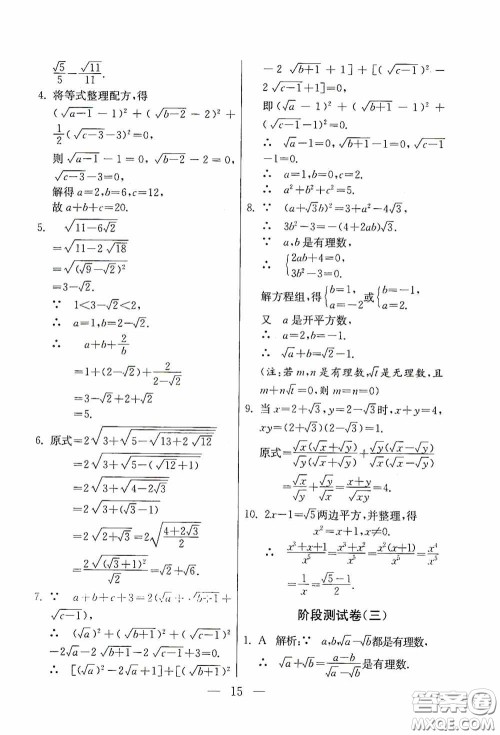 √5/5 − √11/11.
4. 将等式整理配方,得
(√(a−1) − 1)² + (√(b−2) − 2)² +
1/2(√(c−3) − 3)² = 0,
则 √(a−1) − 1 = 0, √(b−2) − 2 = 0,
√(c−3) − 3 = 0.
解得 a=2,b=6,c=12,
故 a+b+c=20.
5. √(11−6√2)
=√(11−2√18)
=√((√9−√2)²)
=3−√2.
∵ 1<3−√2<2,
∴ a=1,b=2−√2.
∴ a+b+2/b
=1+(2−√2)+2/(2−√2)
=3−√2+2+√2
=5.
6. 原式=2√(3+√(5−√(13+2√12)))
=2√(3+√(5−(√12+1)))
=2√(3+√(4−2√3))
=2√(3+(√3−1))
=2√(2+√3)=2√((4+2√3)/2)
=2√((√3+1)²)/√2=√2+√6.
7. ∵ a+b+c+3=2(√a+√(b+1)+
√(c−1)),
∴ (√a)²+(√(b+1))²+(√(c−1))²
−2√a−2√(b+1)−2√(c−1)+3=0.
∴ [(√a)²−2√a+1]+[(√(b+1))²
−2√(b+1)+1]+[(√(c−1))²−
2√(c−1)+1]=0,
即(√a−1)²+(√(b+1)−1)²+
(√(c−1)−1)²=0.
∴ √a−1=0,√(b+1)−1=0,√(c−1)
−1=0.
∴ a=1,b=0,c=2.
∴ a²+b²+c²=5.
8. ∵ (a+√3b)²=3+a²−4√3,
∴ 3b²−3=−(4+2ab)√3.
∵ a,b是有理数,
∴ {2ab+4=0, 3b²−3=0.
解方程组,得{b=1, a=−2 或{b=−1, a=2.
又 a是开平方数,
∴ √a+b=√2−1.
(注:若m,n是有理数,√t是无理数,且
m+n√t=0,则m=n=0.)
9. 当x=2+√3,y=2−√3时,x+y=4,
xy=(2+√3)(2−√3)=1.
原式=√x(√x+√y)/(√y(√x+√y))+√y(√x−√y)/(√x(√x−√y))
=√x/√y+√y/√x=(x+y)/√(xy)=4.
10. 2x−1=√5两边平方,并整理,得
x²=x+1,x²−x=1.
∴ (x³+x+1)/x⁵=(x³+x²)/x⁵=x²(x+1)/x⁵=x⁴/x⁵
=1/x=(√5−1)/2.
阶段测试卷(三)
1. A 解析:∵ a,b,√a−√b都是有理数,
∴ √a+√b=(a−b)/(√a−√b)是有理数.
15
答案圈
MXQE.COM